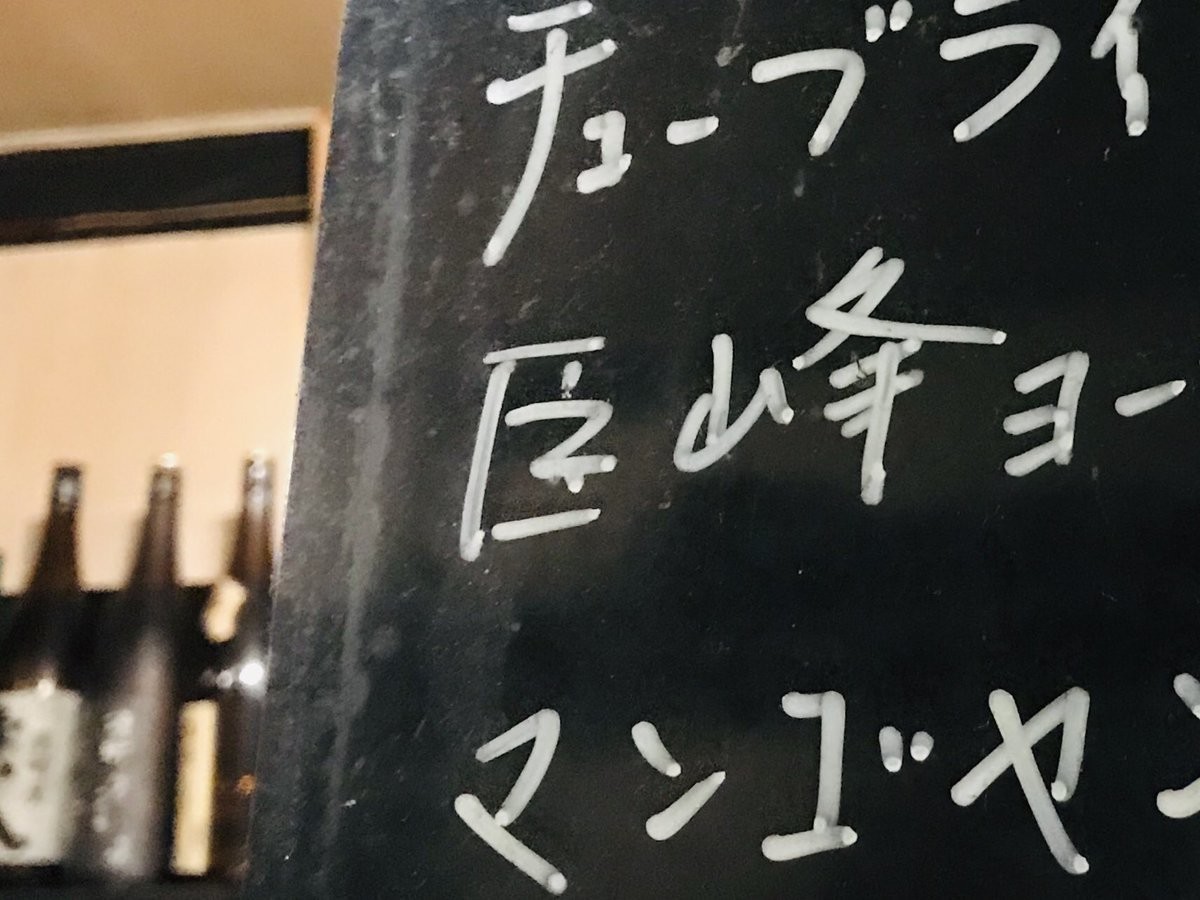 チューブライ
巨峰ヨー
マンゴヤ